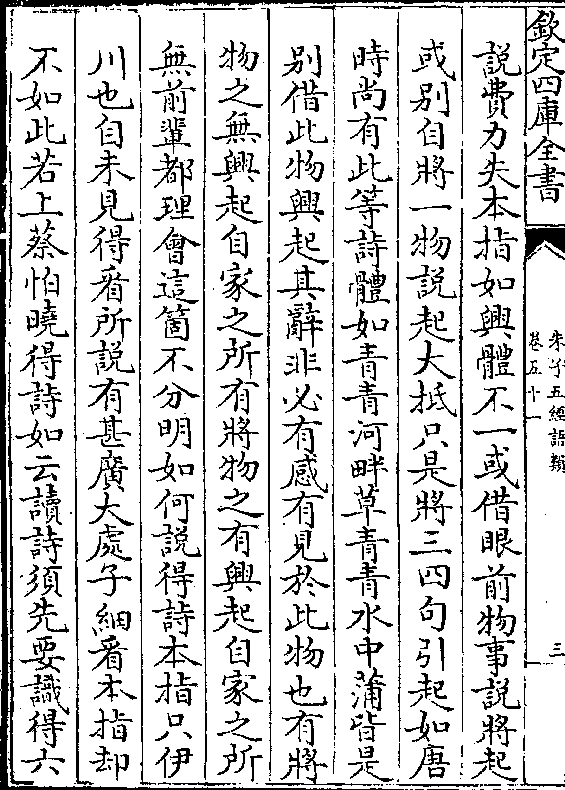 欽定四庫全書
朱子五經語類
卷五十一
三
説費力失本指如興體不一或借眼前物事説將起
或别自將一物説起大抵只是將三四句引起如唐
時尚有此等詩體如青青河畔草青青水中蒲皆是
别借此物興起其辭非必有感有見於此物也有將
物之無興起自家之所有將物之有興起自家之所
無前輩都理會這箇不分明如何説得詩本指只伊
川也自未見得看所説有甚廣大處子細看本指却
不如此若上蔡怕曉得詩如云讀詩須先要識得六